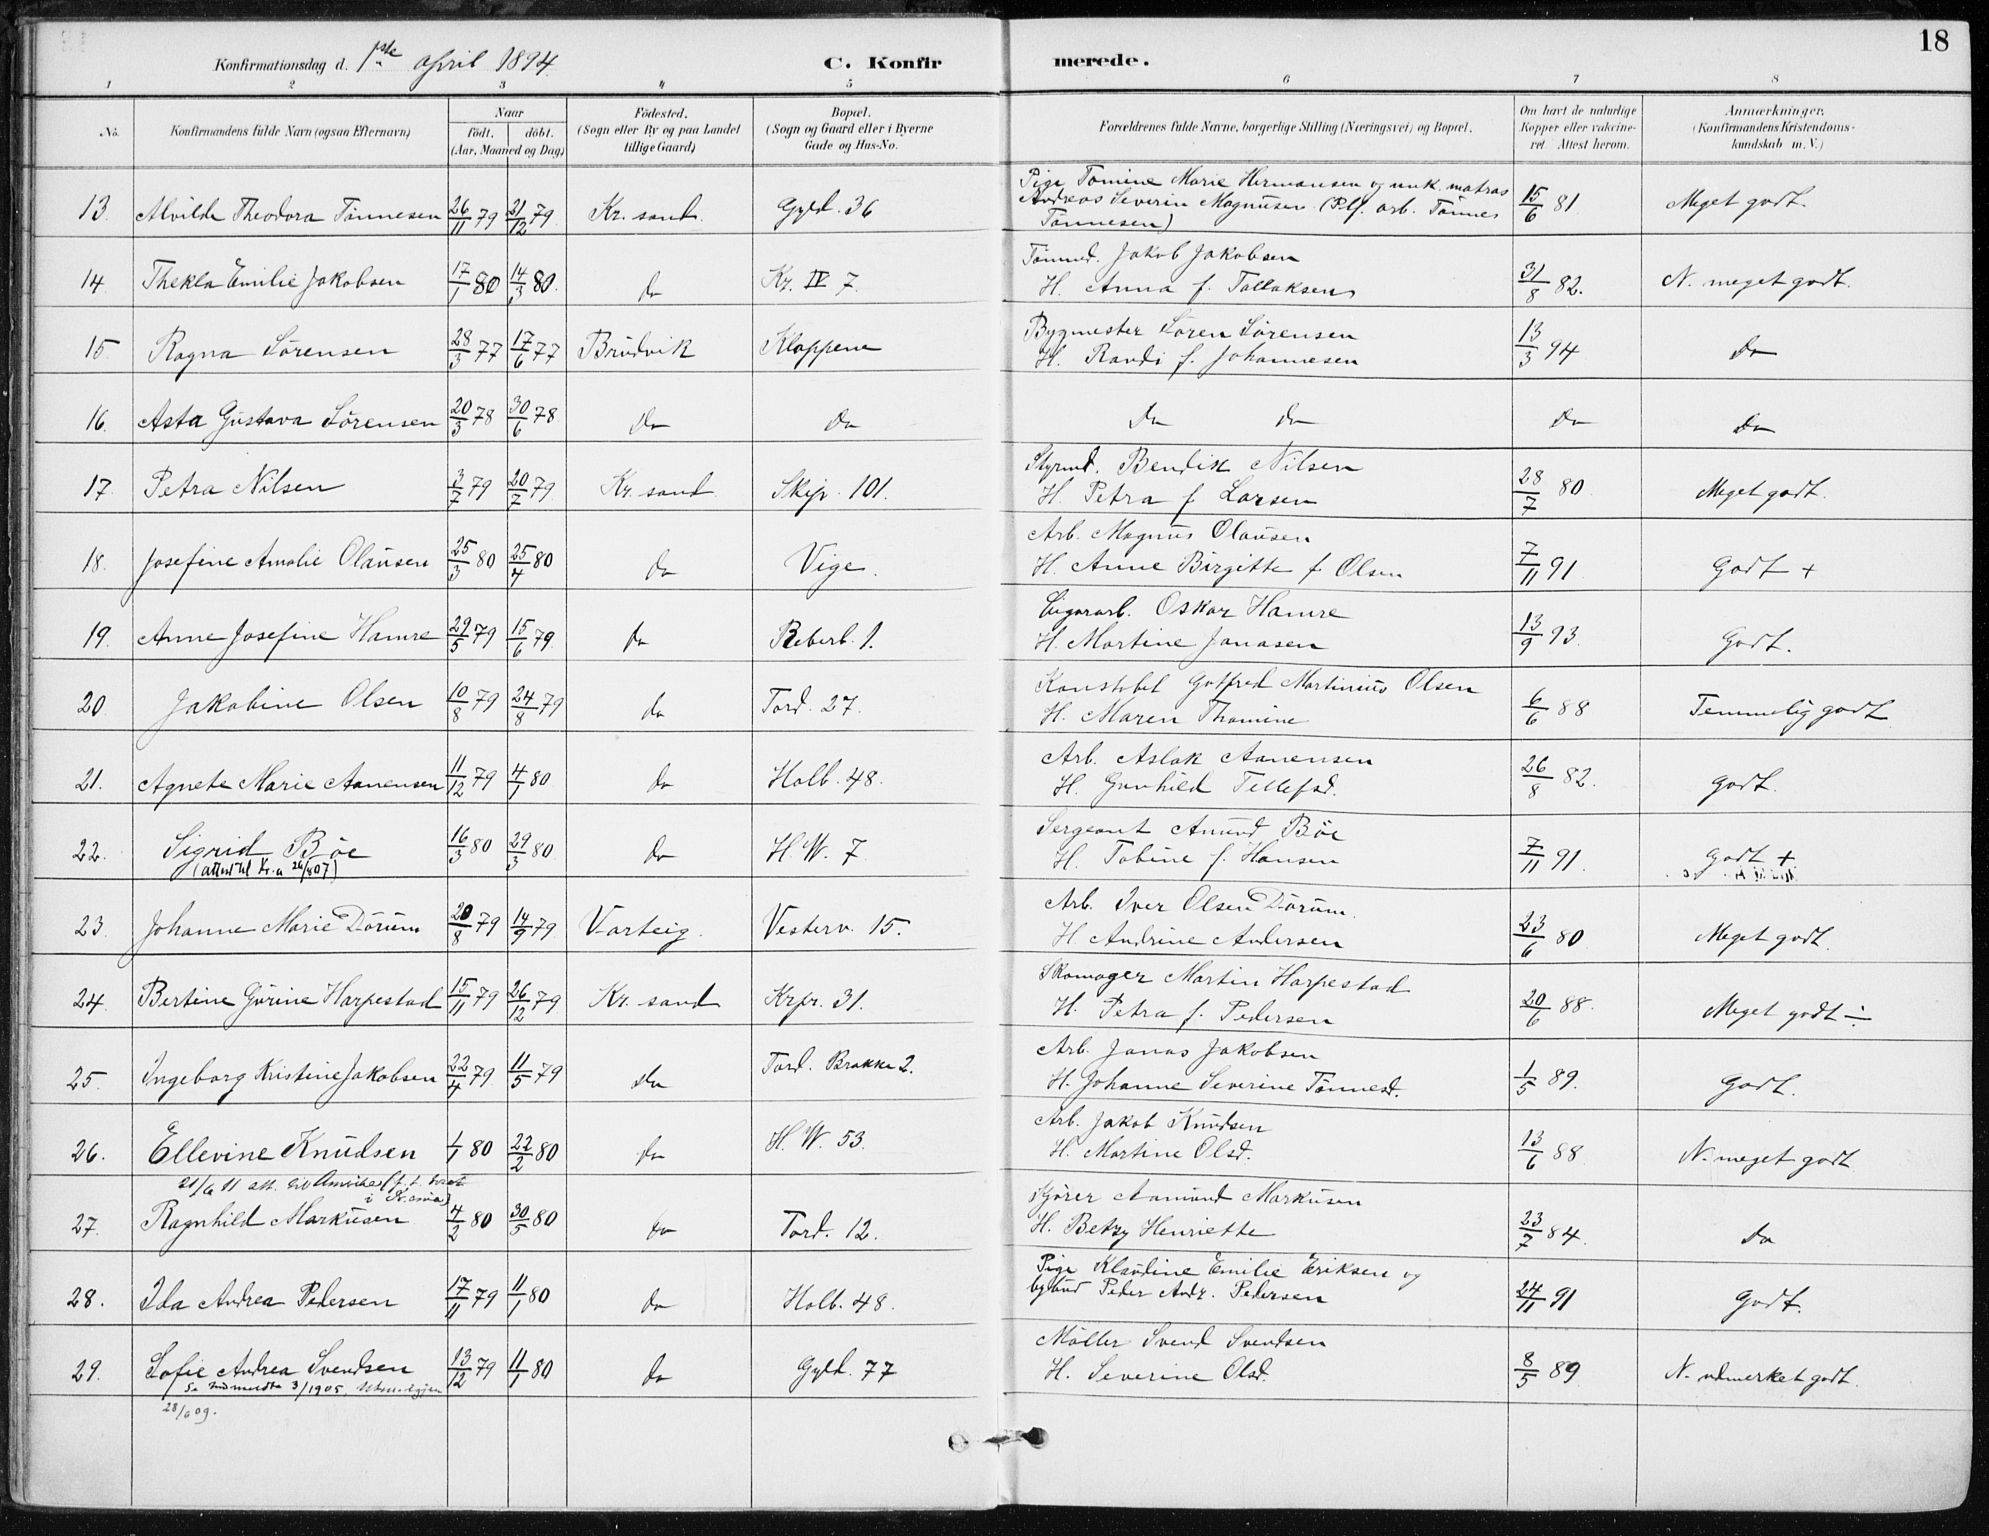 18
Konfirmationsdag d. 1ste april 1894. C. Konfirmerede.
1 2 3 4 5 6 7 8
No. Konfirmandens fulde Navn (ogsaa Efternavn) Naar født. døbt. (Aar, Maaned og Dag) Fødested. (Sogn eller By og paa Landet tillige Gaard) Bopæl. (Sogn og Gaard eller i Byerne Gade og Hus-No. Forældrenes fulde Navne, borgerlige Stilling (Næringsvei) og Bopæl. Om havt de naturlige Kopper eller vakcineret. Attest herom. Anmærkninger. (Konfirmandens Kristendomskundskab m. V.)
13. Alvilde Theodora Tønnesen 26/11 79 21/12 79. Kr. sand. Gyld. 36 Pige Tomine Marie Hermansen og unk. matros Andreas Severin Magnusen (Plf. arb. Tønnes Tønnesen) 15/6 81 Meget godt.
14. Thekla Emilie Jakobsen 17/1 80 14/3 80. Do Kr. IV 7. Tømmd. Jakob Jakobsen
H. Anna f. Tallaksen 31/8 82. N. meget godt.
15. Ragna Sørensen 28/3 77 17/6 77 Brudvik Kloppene Bygmester Søren Sørensen
H. Randi f. Johannesen 13/3 94 Do
16. Asta Gustava Sørensen 20/3 78 30/6 78 Do Do Do Do Do Do
17. Petra Nilsen 3/7 79 20/7 79. Kr. sand Skip. 101. Styrmd. Bendix Nilsen
H. Petra f Larsen 28/7 80 Meget godt.
18. Josefine Amalie Olausen 25/3 80 25/4 80 Do Vige. Arb. Magnus Olausen
H. Anne Birgitte f Olsen 7/11 91 Godt +
19. Anne Josefine Hamre 29/5 79 15/6 79. Do Reberb. 1. Cigararb. Oskar Hamre
H. Martine Janasen 13/9 93. Godt.
20 Jakobine Olsen 10/8 79 24/8 79 Do Tord. 27. Konstabel Gotfred Martinius Olsen
H. Maren Thomine 6/6 88 Temmelig godt
21. Agnete Marie Aanensen 11/12 79 4/1 80 Do Holb. 48. Arb. Aslak Aanensen
H. Gunhild Tellefsd. 26/8 82. Godt.
22. Sigrid Bøe 16/3 80 29/3 80. Do H. W. 7. Sergeant Amund Bøe
(attest til Kr.a 26/8 07) H. Tobine f. Hansen 7/11 91. Godt +
23. Johanne Marie Dørum 20/8 79 14/9 79 Varteig. Vesterv. 15. Arb. Iver Olsen Dørum.
H. Andrine Andersen 23/6 80 Meget godt.
24. Bertine Gurine Harpestad 15/11 79 26/12 79 Kr. sand Krpr. 31. Skomager Martin Harpestad
H. Petra f. Pedersen 20/6 88. Meget godt ÷
25. Ingeborg Kristine Jakobsen 22/4 79. 11/5 79 Do Tord. Brakke 2. Arb. Jonas Jakobsen
H. Johanne Severine Tønnesd. 1/5 89. Godt.
26. Ellevine Knudsen 1/1 80 22/2 80 Do H. W. 53. Arb. Jakob Knudsen
H. Martine Olsd. 13/6 88 N. meget godt
21/6 11 att. til Amerika (f. t. bosat i Kr.ania)
27. Ragnhild Markusen 4/2 80 30/5 80 Do Tord. 12. Gjører Aamund Markusen
H. Betzy Henriette 23/7 84. Do
28. Ida Andrea Pedersen 17/11 79 11/1 80 Do Holb. 48. Pige Klaudine Emilie Eriksen og
bybud Peder Andr. Pedersen 24/11 91 Godt.
29. Sofie Andrea Svendsen 13/12 79 11/1 80 Do Gyld. 77 Møller Svend Svendsen
H. Severine Olsd. 8/5 89 N. udmerket godt.
3/1905
28/6 09.